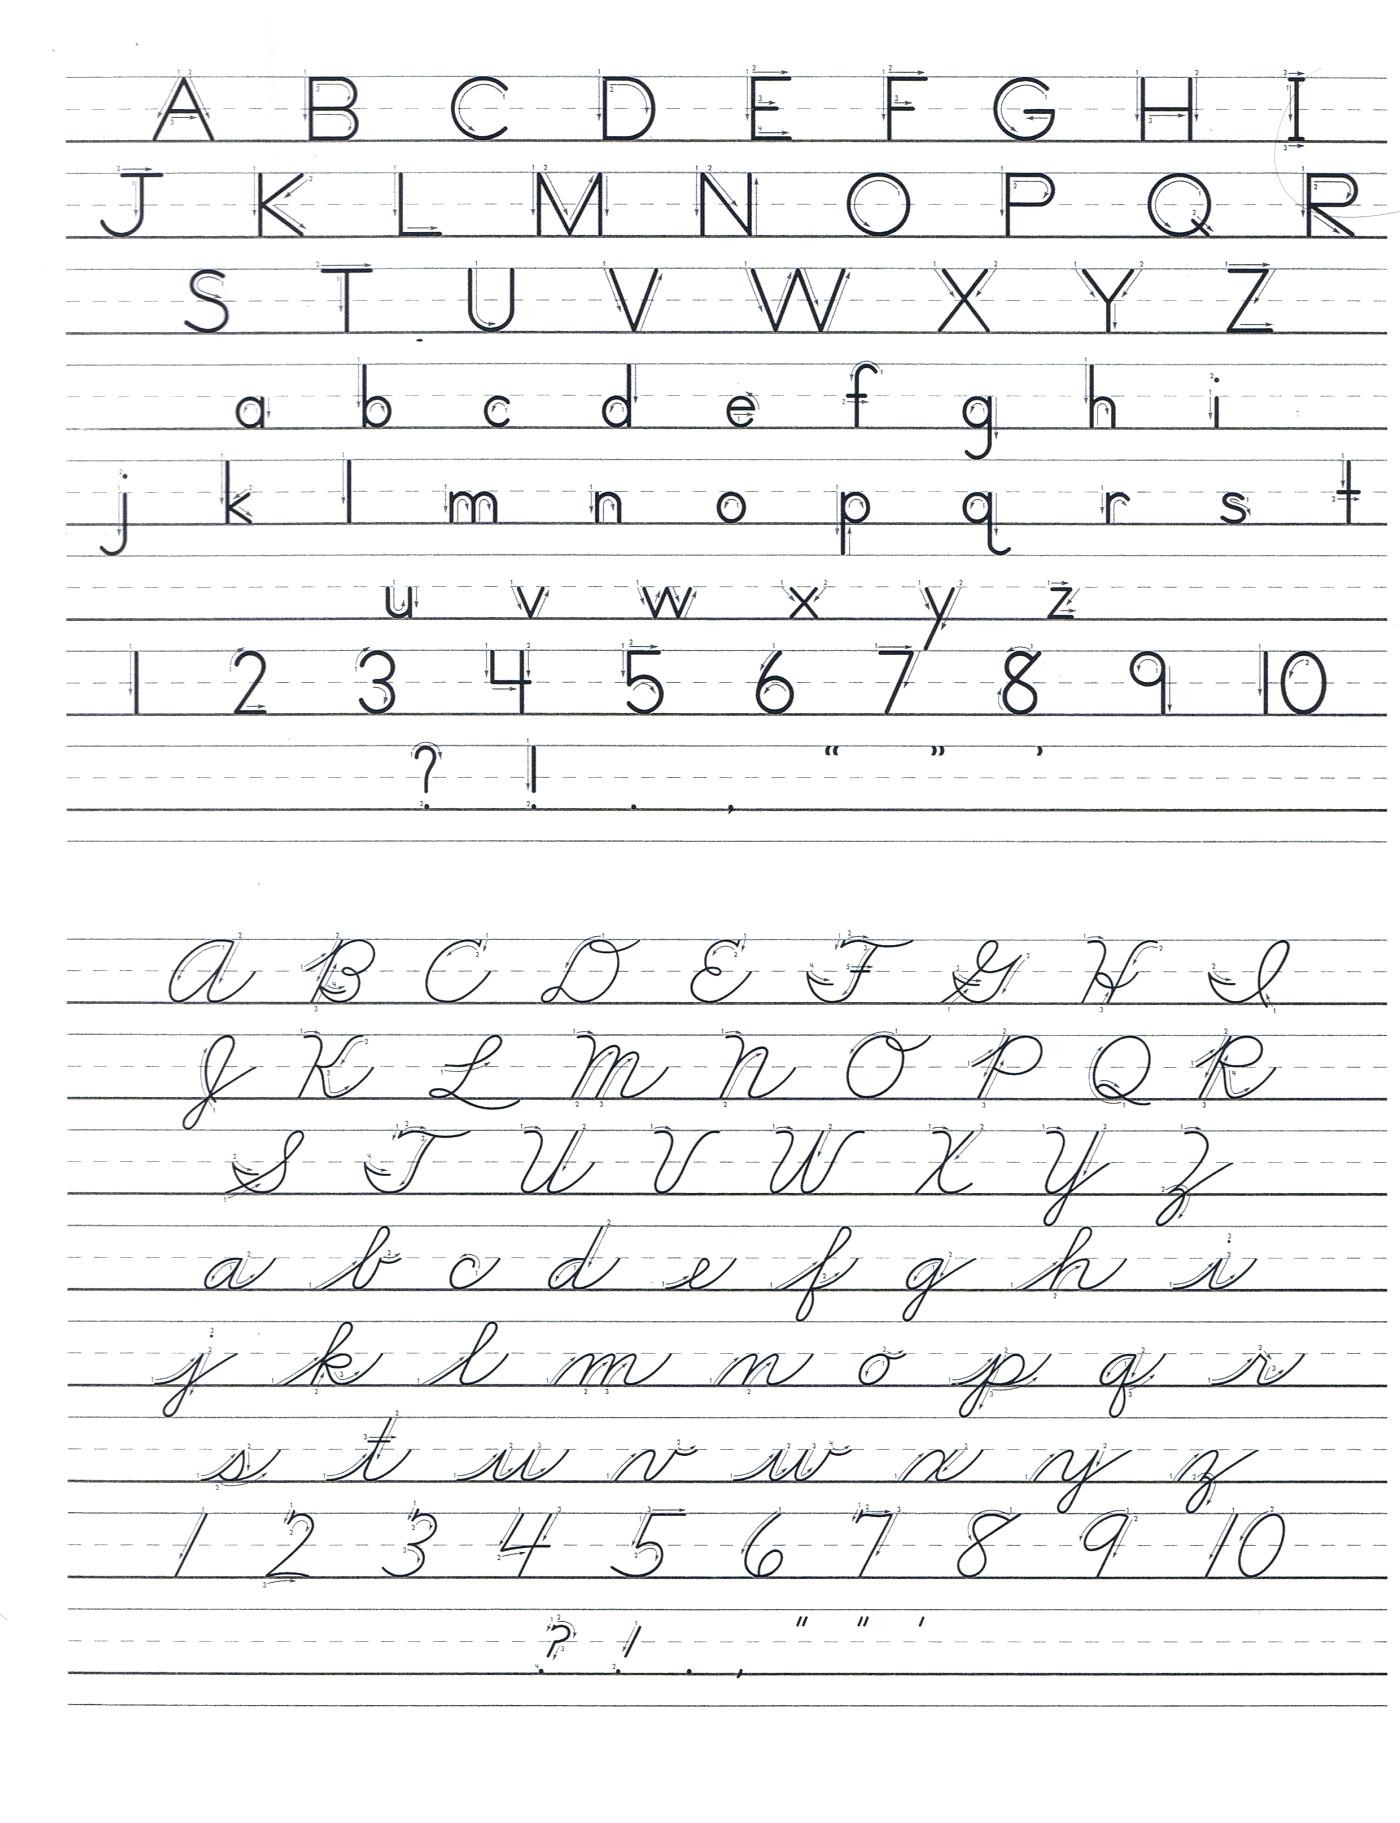 A B C D E F G H I
J K L M N O P Q R
S T U V W X Y Z
a b c d e f g h i
j k l m n o p q r s t
u v w x y z
1 2 3 4 5 6 7 8 9 10
? ! . , “ ” ’
A B C D E F G H I
J K L M N O P Q R
S T U V W X Y Z
a b c d e f g h i
j k l m n o p q r
s t u v w x y z
1 2 3 4 5 6 7 8 9 10
? ! . , " " '